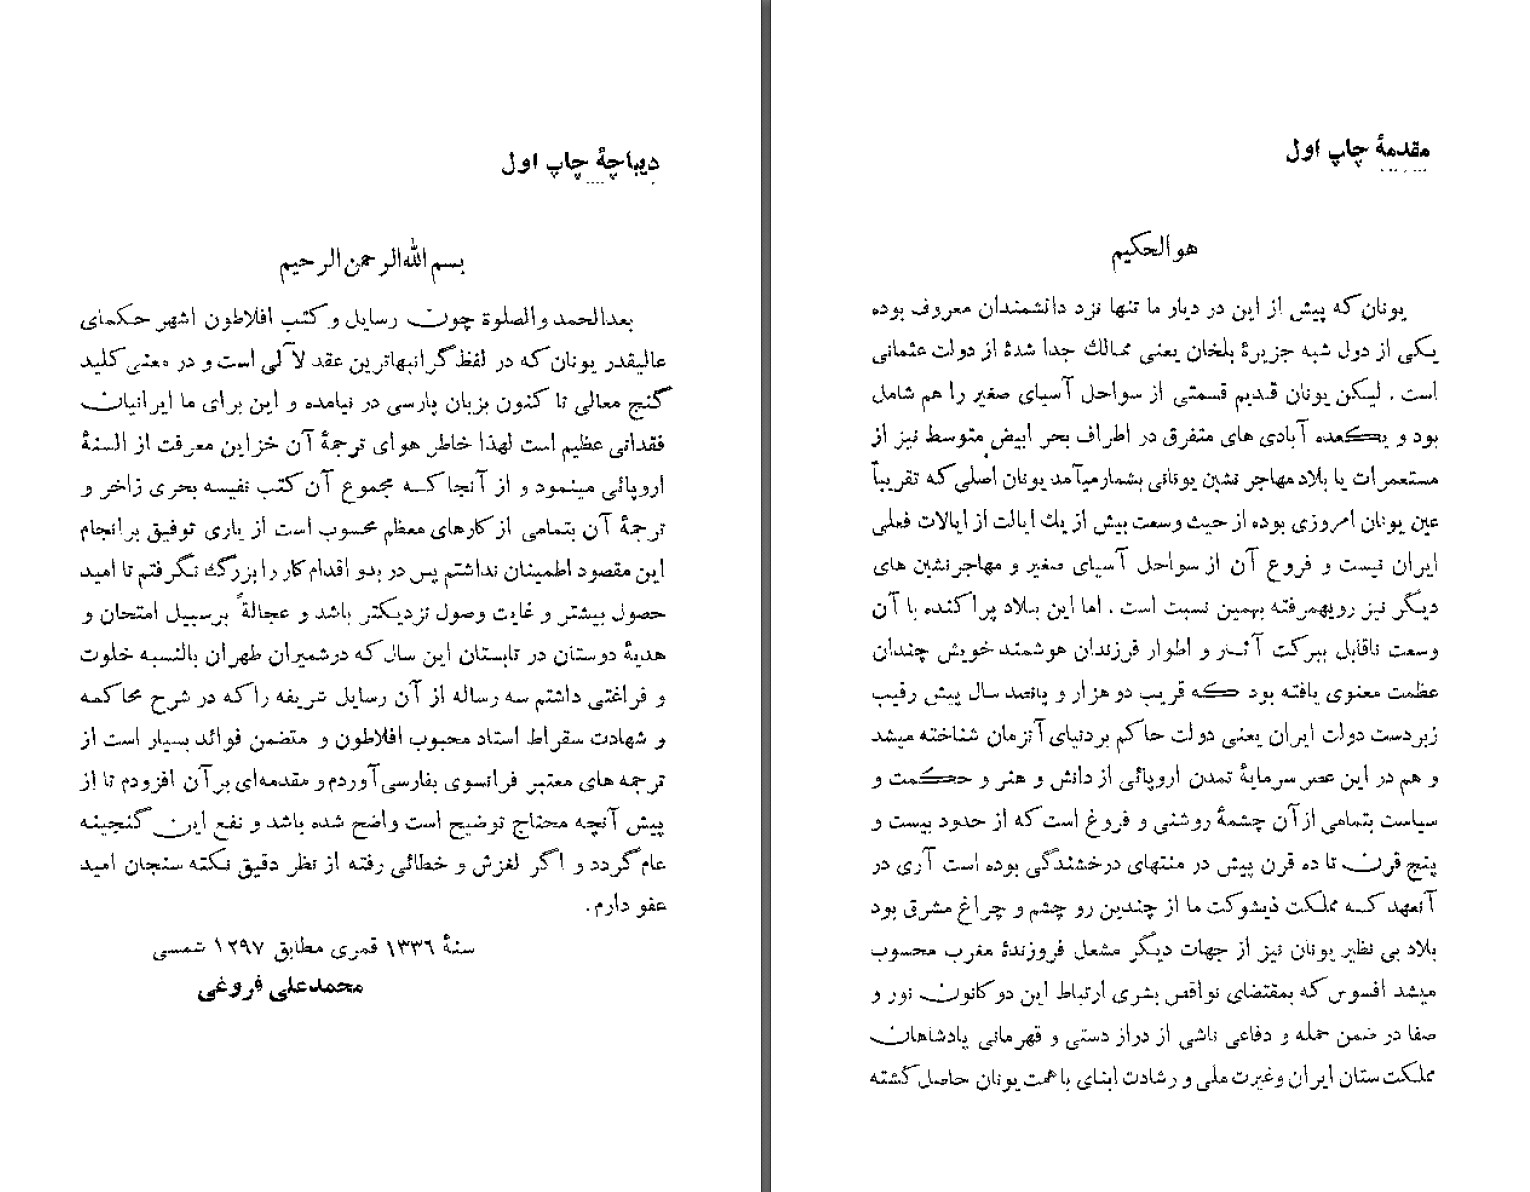 مقدمهٔ چاپ اول
هوالحکیم
یونان که پیش از این در دیار ما تنها نزد دانشمندان معروف بوده
یکی از دول شبه جزیرهٔ بلخان یعنی ممالک جدا شدهٔ از دولت عثمانی
است . لیکن یونان قدیم قسمتی از سواحل آسیای صغیر را هم شامل
بود و یکعده آبادی های متفرق در اطراف بحر ابیض متوسط نیز از
مستعمرات یا بلاد مهاجر نشین یونانی بشمار میآمد یونان اصلی که تقریباً
عین یونان امروزی بوده از حیث وسعت بیش از یک ایالت از ایالات فعلی
ایران نیست و فروع آن از سواحل آسیای صغیر و مهاجر نشین های
دیگر نیز رویهمرفته بهمین نسبت است . اما این بلاد پراکنده با آن
وسعت ناقابل ببرکت آثار و اطوار فرزندان هوشمند خویش چندان
عظمت معنوی یافته بود که قریب دو هزار و پانصد سال پیش رقیب
زبردست دولت ایران یعنی دولت حاکم بر دنیای آنزمان شناخته میشد
و هم در این عصر سرمایهٔ تمدن اروپائی از دانش و هنر و حکمت و
سیاست بتمامی از آن چشمهٔ روشنی و فروغ است که از حدود بیست و
پنج قرن تا ده قرن پیش در منتهای درخشندگی بوده است آری در
آنعهد که مملکت ذیشوکت ما از چندین رو چشم و چراغ مشرق بود
بلاد بی نظیر یونان نیز از جهات دیگر مشعل فروزندهٔ مغرب محسوب
میشد افسوس که بمقتضای نواقص بشری ارتباط این دو کانون نور و
صفا در ضمن حمله و دفاعی ناشی از دراز دستی و قهرمانی پادشاهان
مملکت ستان ایران و غیرت ملی و رشادت ابنای با همت یونان حاصل گشته
دیباچهٔ چاپ اول
بسم الله الرحمن الرحیم
بعدالحمد والصلوة چون رسایل و کتب افلاطون اشهر حکمای
عالیقدر یونان که در لفظ گرانبهاترین عقد لآلی است و در معنی کلید
گنج معالی تا کنون بزبان پارسی در نیامده و این برای ما ایرانیان
فقدانی عظیم است لهذا خاطر هوای ترجمهٔ آن خزاین معرفت از السنهٔ
اروپائی مینمود و از آنجا که مجموع آن کتب نفیسه بحری زاخر و
ترجمهٔ آن بتمامی از کارهای معظم محسوب است از یاری توفیق بر انجام
این مقصود اطمینان نداشتم پس در بدو اقدام کار را بزرگ نگرفتم تا امید
حصول بیشتر و غایت وصول نزدیکتر باشد و عجالةً برسبیل امتحان و
هدیهٔ دوستان در تابستان این سال که در شمیران طهران بالنسبه خلوت
و فراغتی داشتم سه رساله از آن رسایل شریفه را که در شرح محاکمه
و شهادت سقراط استاد محبوب افلاطون و متضمن فوائد بسیار است از
ترجمه های معتبر فرانسوی بفارسی آوردم و مقدمه‌ای بر آن افزودم تا از
پیش آنچه محتاج توضیح است واضح شده باشد و نفع این گنجینه
عام گردد و اگر لغزش و خطائی رفته از نظر دقیق نکته سنجان امید
عفو دارم .
سنهٔ ۱۳۳۶ قمری مطابق ۱۲۹۷ شمسی
محمدعلی فروغی